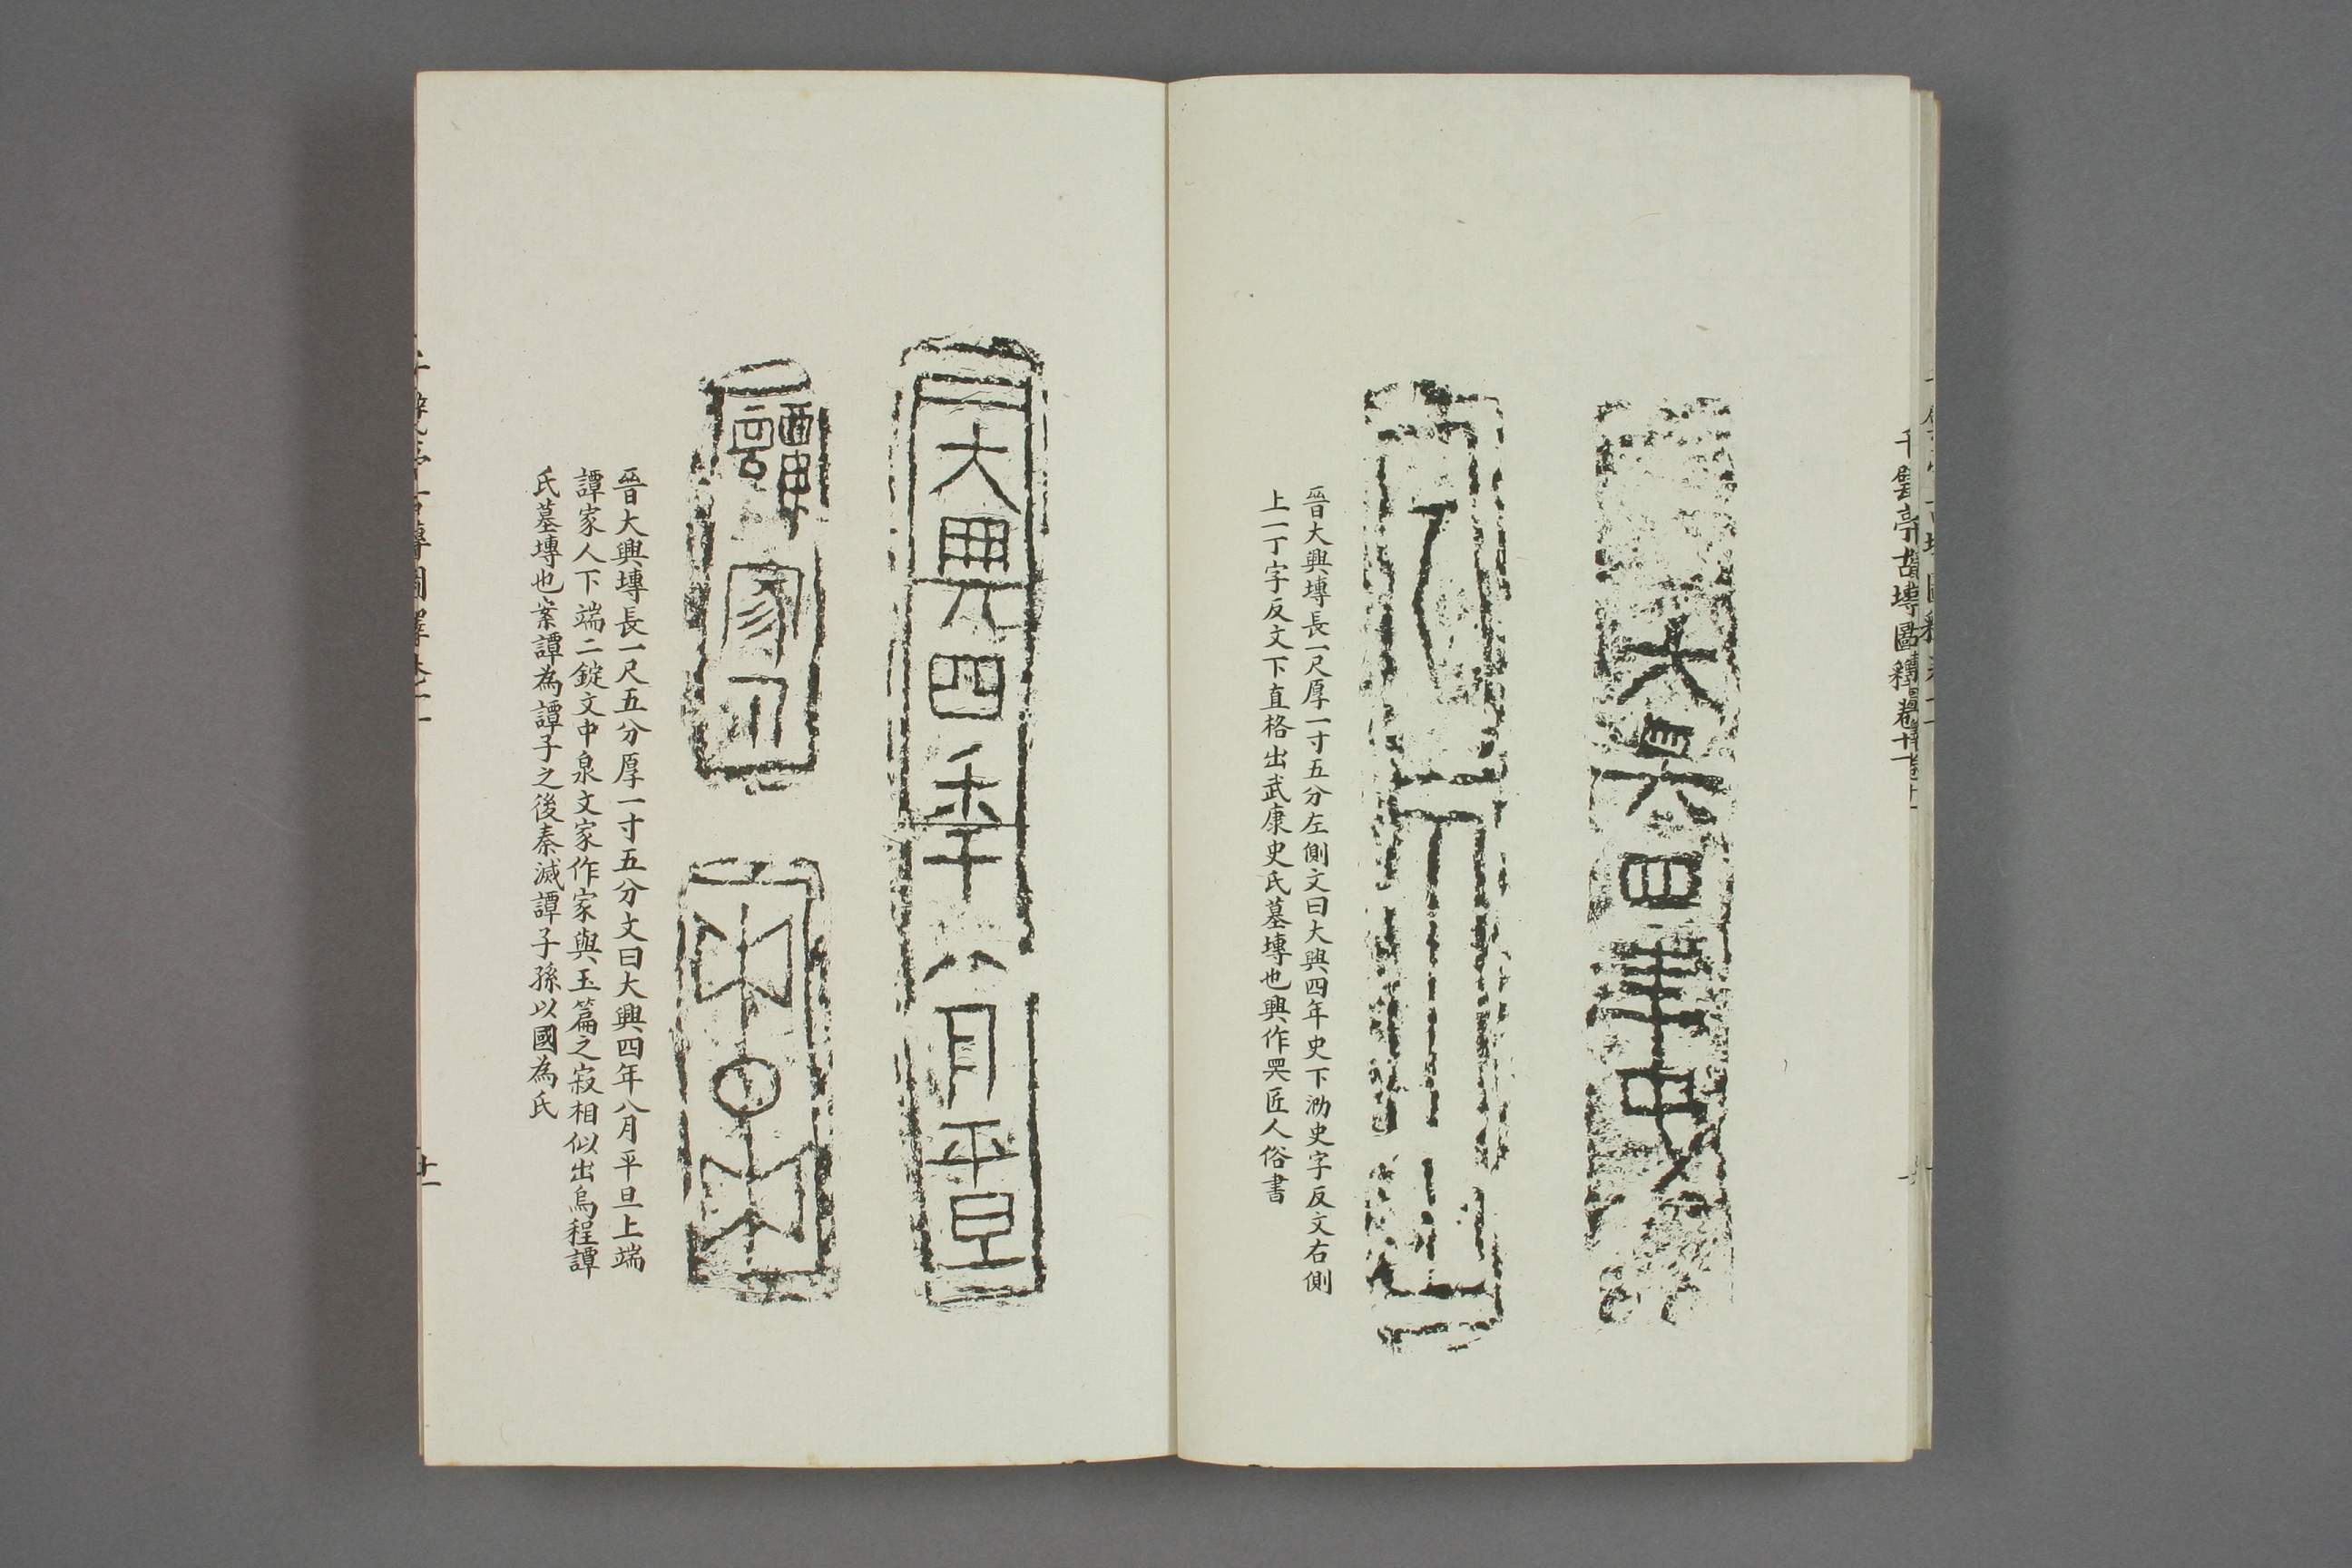 千甓亭古塼圖釋卷十一
大興四年史
丁
晉大興塼長一尺厚一寸五分左側文曰大興四年史下泐史字反文右側
上一丁字反文下直格出武康史氏墓塼也興作㒷匠人俗書
大興四年八月平旦
譚家人
晉大興塼長一尺五分厚一寸五分文曰大興四年八月平旦上端
譚家人下端二錠文中泉文家作家與玉篇之寂相似出烏程譚
氏墓塼也案譚為譚子之後秦滅譚子孫以國為氏